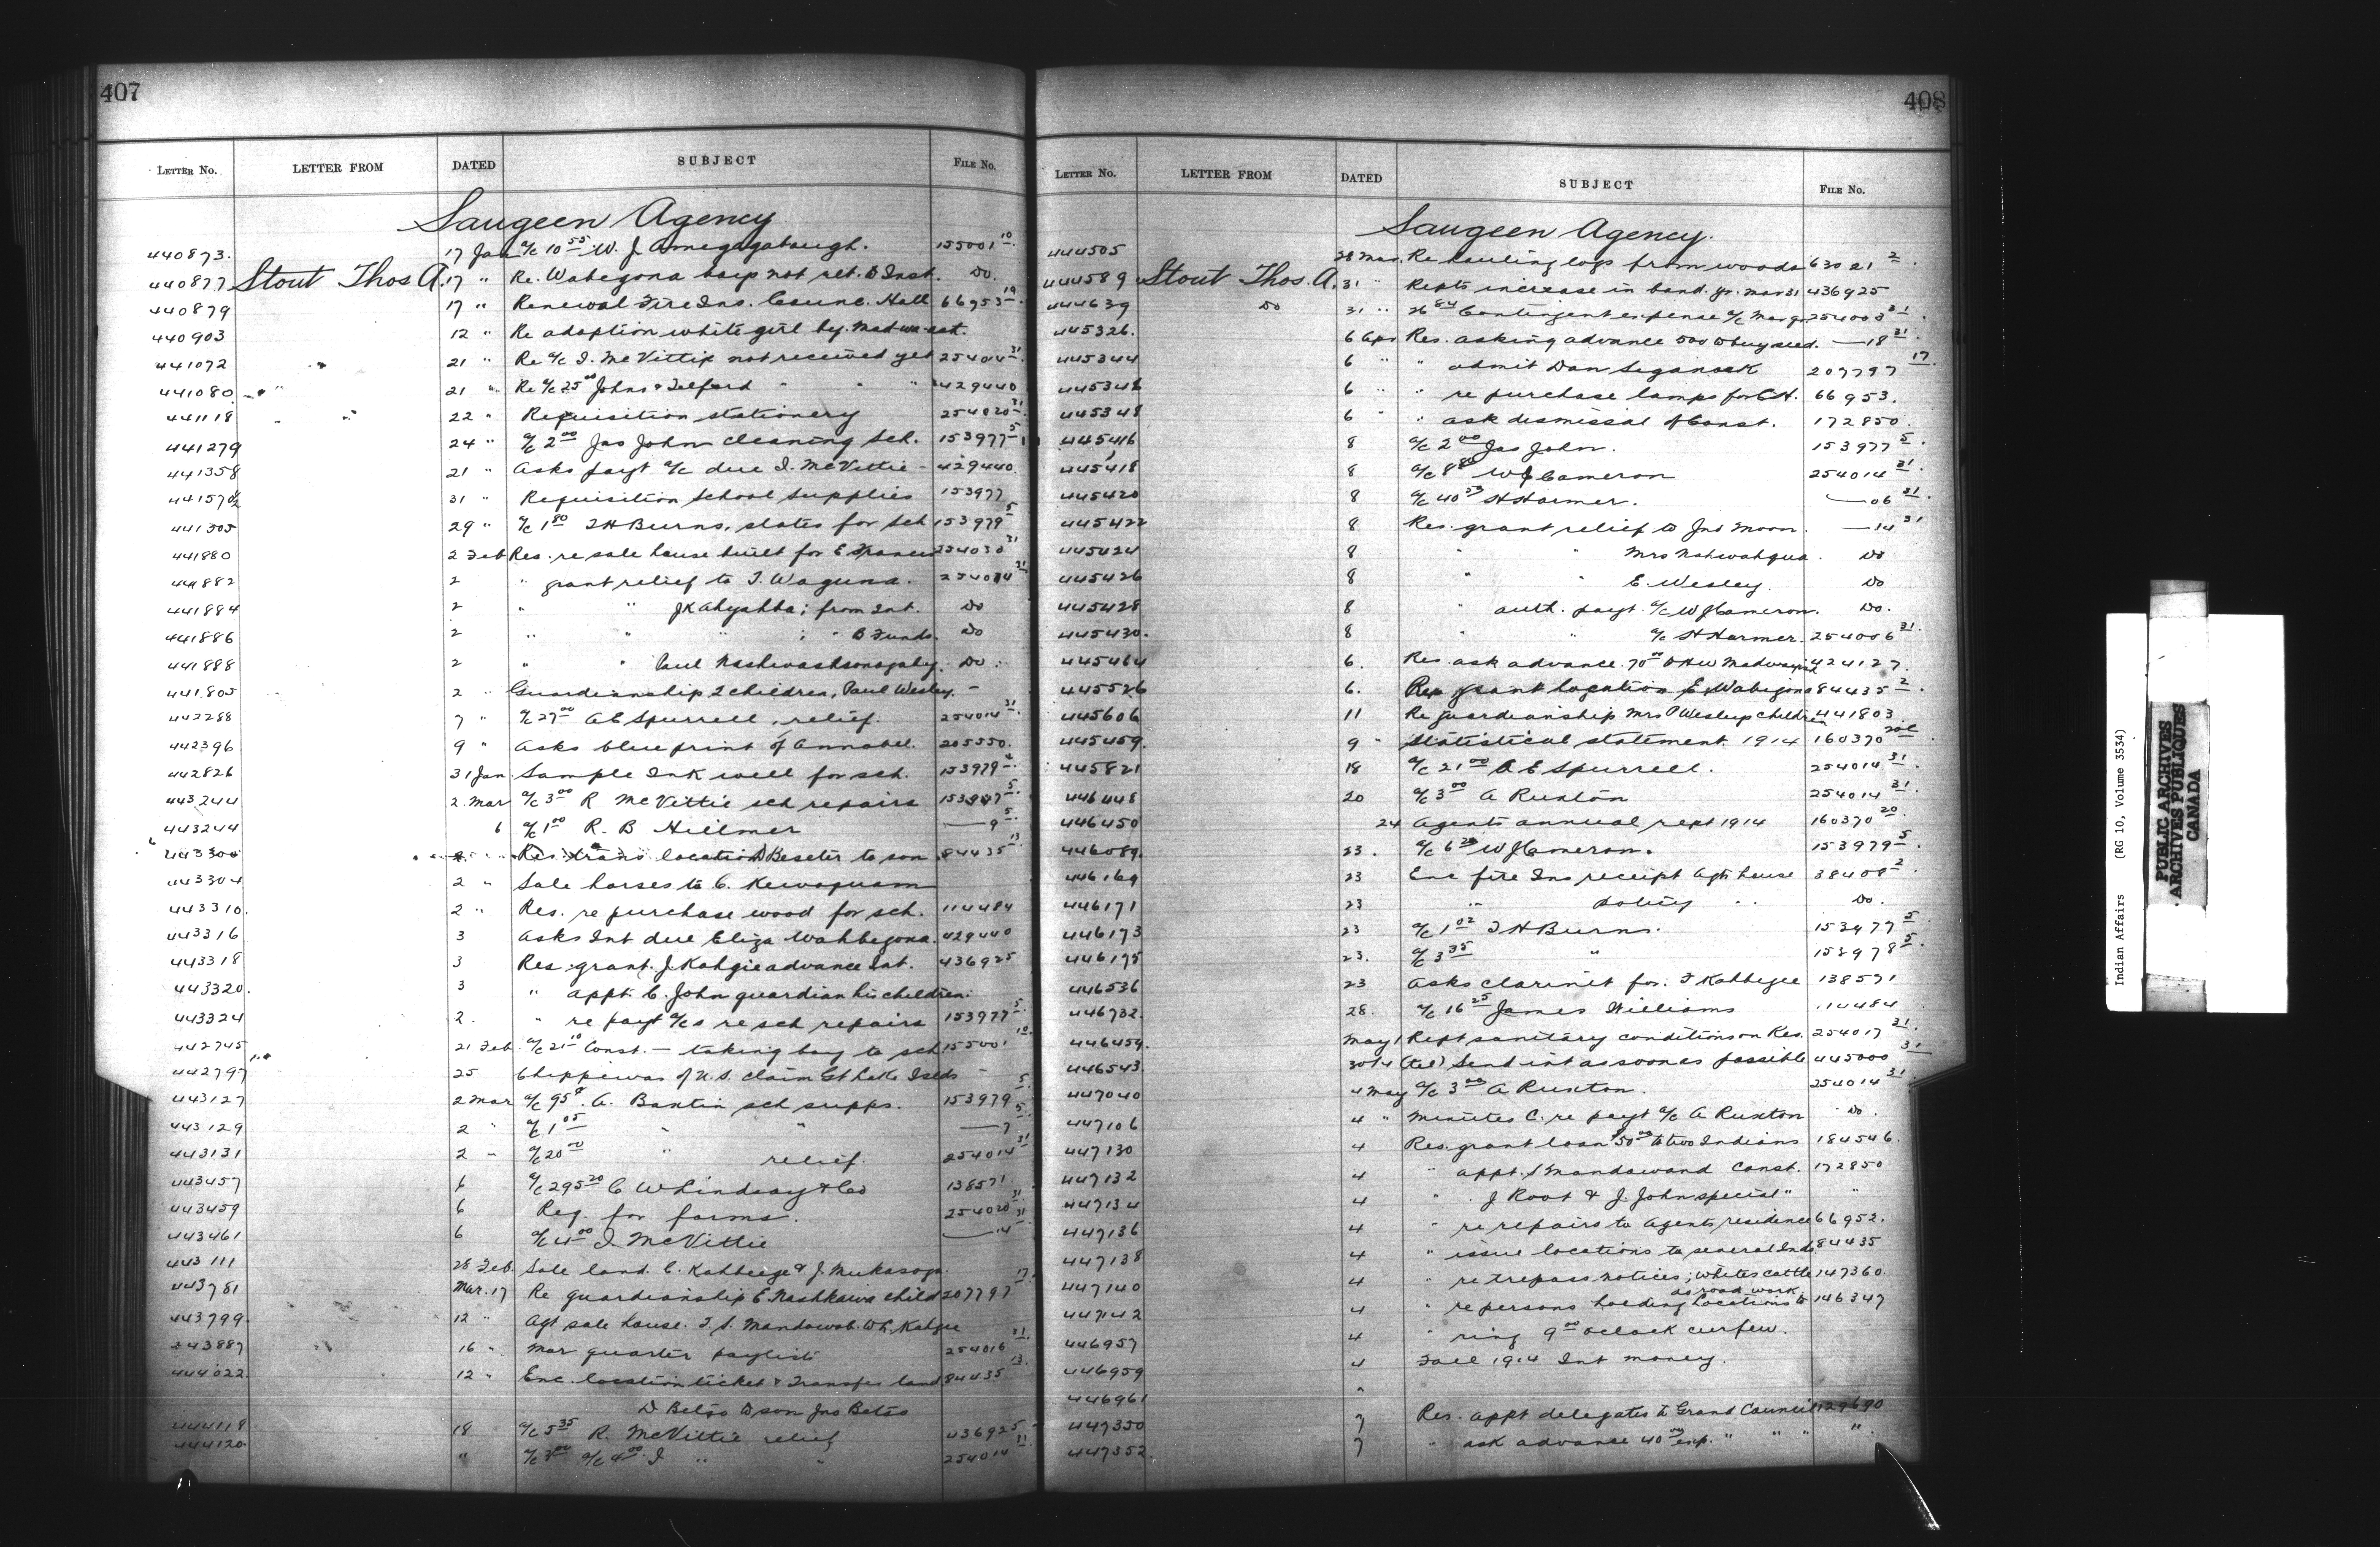 407
LETTER NO. LETTER FROM DATED SUBJECT FILE NO.
Saugeen Agency
440873. 17 Jan a/c 10 55 W. J. 155001 10
440877 Stout Thos A. 17 " Re. Wabegona boys not ret. to Inst. Do.
440879 17 " Renewal Fire Ins. Counc. Hall 66953 19
440903 12 " Re adoption white girl by
441072 21 " Re a/c I. McVittie not received yet 25404 31
441080 21 " Re a/c 25 00 Johns & Telford " " " 429440
441118 22 " Requisition stationery 254020 31
441279 24 " a/c 2 00 Jas John cleaning Sch. 153977 5
441358 21 " Asks payt a/c due I. McVittie - 429440.
441570½ 31 " Requisition School Supplies 153977
441305 29 " a/c 1 80 T H Burns, slates for Sch 153979 5
441880 2 Feb Res. re sale house built for E 254030 31
441882 2 " grant relief to T. Waguna. 254014 31
441884 2 " " J K ; from Int. Do
441886 2 " " " ; " B Funds. Do
441888 2 " " Paul Do.
441805 2 " Guardianship 2 children, Paul Wesley. -
442288 7 " a/c 27 00 A E Spurrell, relief. 254014 31
442396 9 " Asks blue print of Annabel. 205550.
442826 31 Jan. Sample Ink well for sch. 153979 4
443244 2. Mar a/c 3 00 R McVittie sch repairs 153977 5
443244 6 a/c 1 00 R. B Hillmer — 9 5
443300 Res. trans location D Beseter to son 84435 13
443304 2 " Sale horses to C. Kewaquam
443310. 2 " Res. re purchase wood for sch. 114484
443316 3 Asks Int due Eliza Wahbegona. 429440
443318 3 Res. grant J. Kahgie advance Int. 436925
443320. 3 " appt. C. John guardian his children.
443324 2. " re payt a/cs re sch repairs 153977 5
442745 21 Feb. a/c 21 10 Const. — taking boy to sch 155001 10
442797 25 Chippewas of U.S. claim Gt Lake Islds -
443127 2 Mar a/c 95¢. A. Bantin sch supps. 153979 5
443129 2 " a/c 1 05 " " — 7 5
443131 2 " a/c 20 00 " relief. 254014 31
443457 6 a/c 295 20 C W Lindsay & Co 138571
443459 6 Req. for forms. 254020 31
443461 6 a/c 4 00 I. McVittie — 14 31
443111 28 Feb. Sale land. C. Kahbeege & J.
443781 Mar. 17 Re guardianship E Nashkawa child 207797 17
443799. 12 " Agt sale house. T. S. Mandawob. W L Kahgee
443887 16 " Mar quarter paylist 254016 31
444022. 12 " Enc. location ticket & Transfer land 84435 13
D Belso to son Jno Belso
444118 18 a/c 5 35 R. McVittie relief 436925
444120. " a/c 3 00 a/c 4 00 I " " 254014 31
408
LETTER NO. LETTER FROM DATED SUBJECT FILE NO.
Saugeen Agency.
444505 28 Mar. Re hauling logs from woods 63021 2
444589 Stout Thos. A. 31 " Repts increase in band. yr. Mar 31 436925
444639 Do 31 " 26 84 Contingent expense a/c Mar qr 254003 31
445326. 6 Apr Res. asking advance 500 to buy seed. — 18 31
445344 6 " " admit Dan 207797 17
445346 6 " " re purchase lamps for C H. 66953.
445348 6 " " ask dismissal of Const. 172850.
445416 8 a/c 2 00 Jas John. 153977 5
445418 8 a/c 8 80 W J Cameron 254014 31
445420 8 a/c 40 53 H Harmer. — 06 31
445422 8 Res. grant relief to Jno Moon. — 14 31
445424 8 " " Mrs Nahwahqua. Do
445426 8 " " E. Wesley. Do
445428 8 " auth. payt. a/c W J Cameron. Do.
445430. 8 " " a/c H Harmer. 254006 31
445464 6. Res. ask advance. 70 00 to H W 424127.
445526 6. Res grant location E Wabigona 84435 2
445606 11 Re guardianship Mrs P Wesley's children 441803
445459. 9 " Statistical statement. 1914 160370
445821 18 a/c 21 00 A E Spurrell. 254014 31
446448 20 a/c 3 00 A Ruxton 254014 31
446450 24 Agents annual rept 1914 160370 20
446089. 23. a/c 6 W J Cameron. 153979 5
446169 23 Enc fire Ins receipt Agts house 38408 2
446171 23 " policy " " Do.
446173 23 a/c 1 02 T H Burns. 153977 5
446175 23. a/c 3 35 " 153978 5
446536 23 Asks clarinet for. T Kahbegee 138571
446732. 28. a/c 16 25 James Williams 114484
446459. May 1 Rept sanitary condition on Res. 254017 31
446543 30/4 (tel) Send int as soon as possible 445000 31
447040 4 May a/c 3 00 A Ruxton. 254014 31
447106 4 " Minutes C. re payt a/c A Ruxton Do.
447130 4 Res. grant loan $50 00 to two Indians 184546.
447132 4 " appt. S Mandawand Const. 172850
447134 4 " J Root & J. John special " "
447136 4 " re repairs to Agents residence 66952.
447138 4 " issue locations to several Inds. 84435
447140 4 " re trespass notices; whites cattle 147360.
447142 4 " re persons holding locations to do road work 146347
446957 4 " ring 9 00 oclock curfew.
446959 4 Fall 1914 Int money.
446961 "
447350 7 Res. appt delegates to Grand Council 129690
447352. 7 " ask advance 40 00 exp. " " " "
Indian Affairs (RG 10, Volume 3534)
PUBLIC ARCHIVES
ARCHIVES PUBLIQUES
CANADA